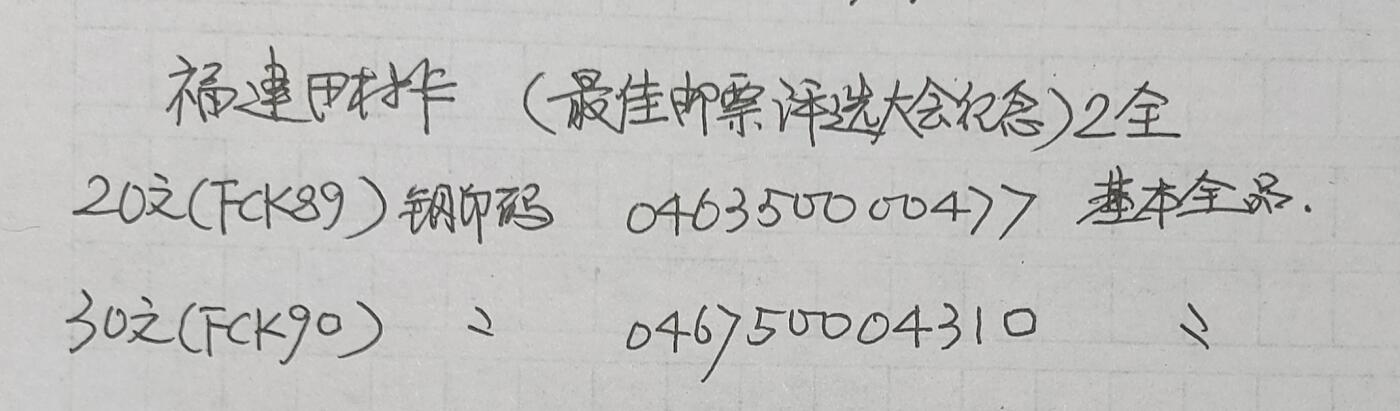 福建田村卡 (最佳邮票评选大会纪念)2全
20元(FCK89) 钢印码 046350000477 基本全品.
30元(FCK90) 〃 046750004310 〃